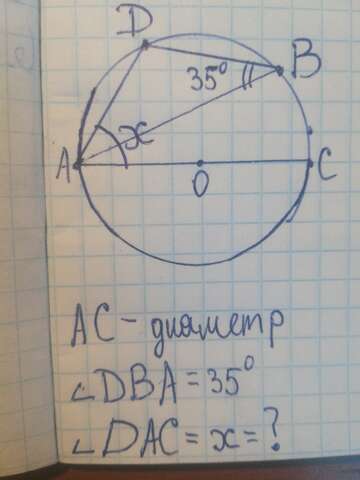 D
35°
B
A
x
O
C
AC - диаметр
∠DBA = 35°
∠DAC = x = ?